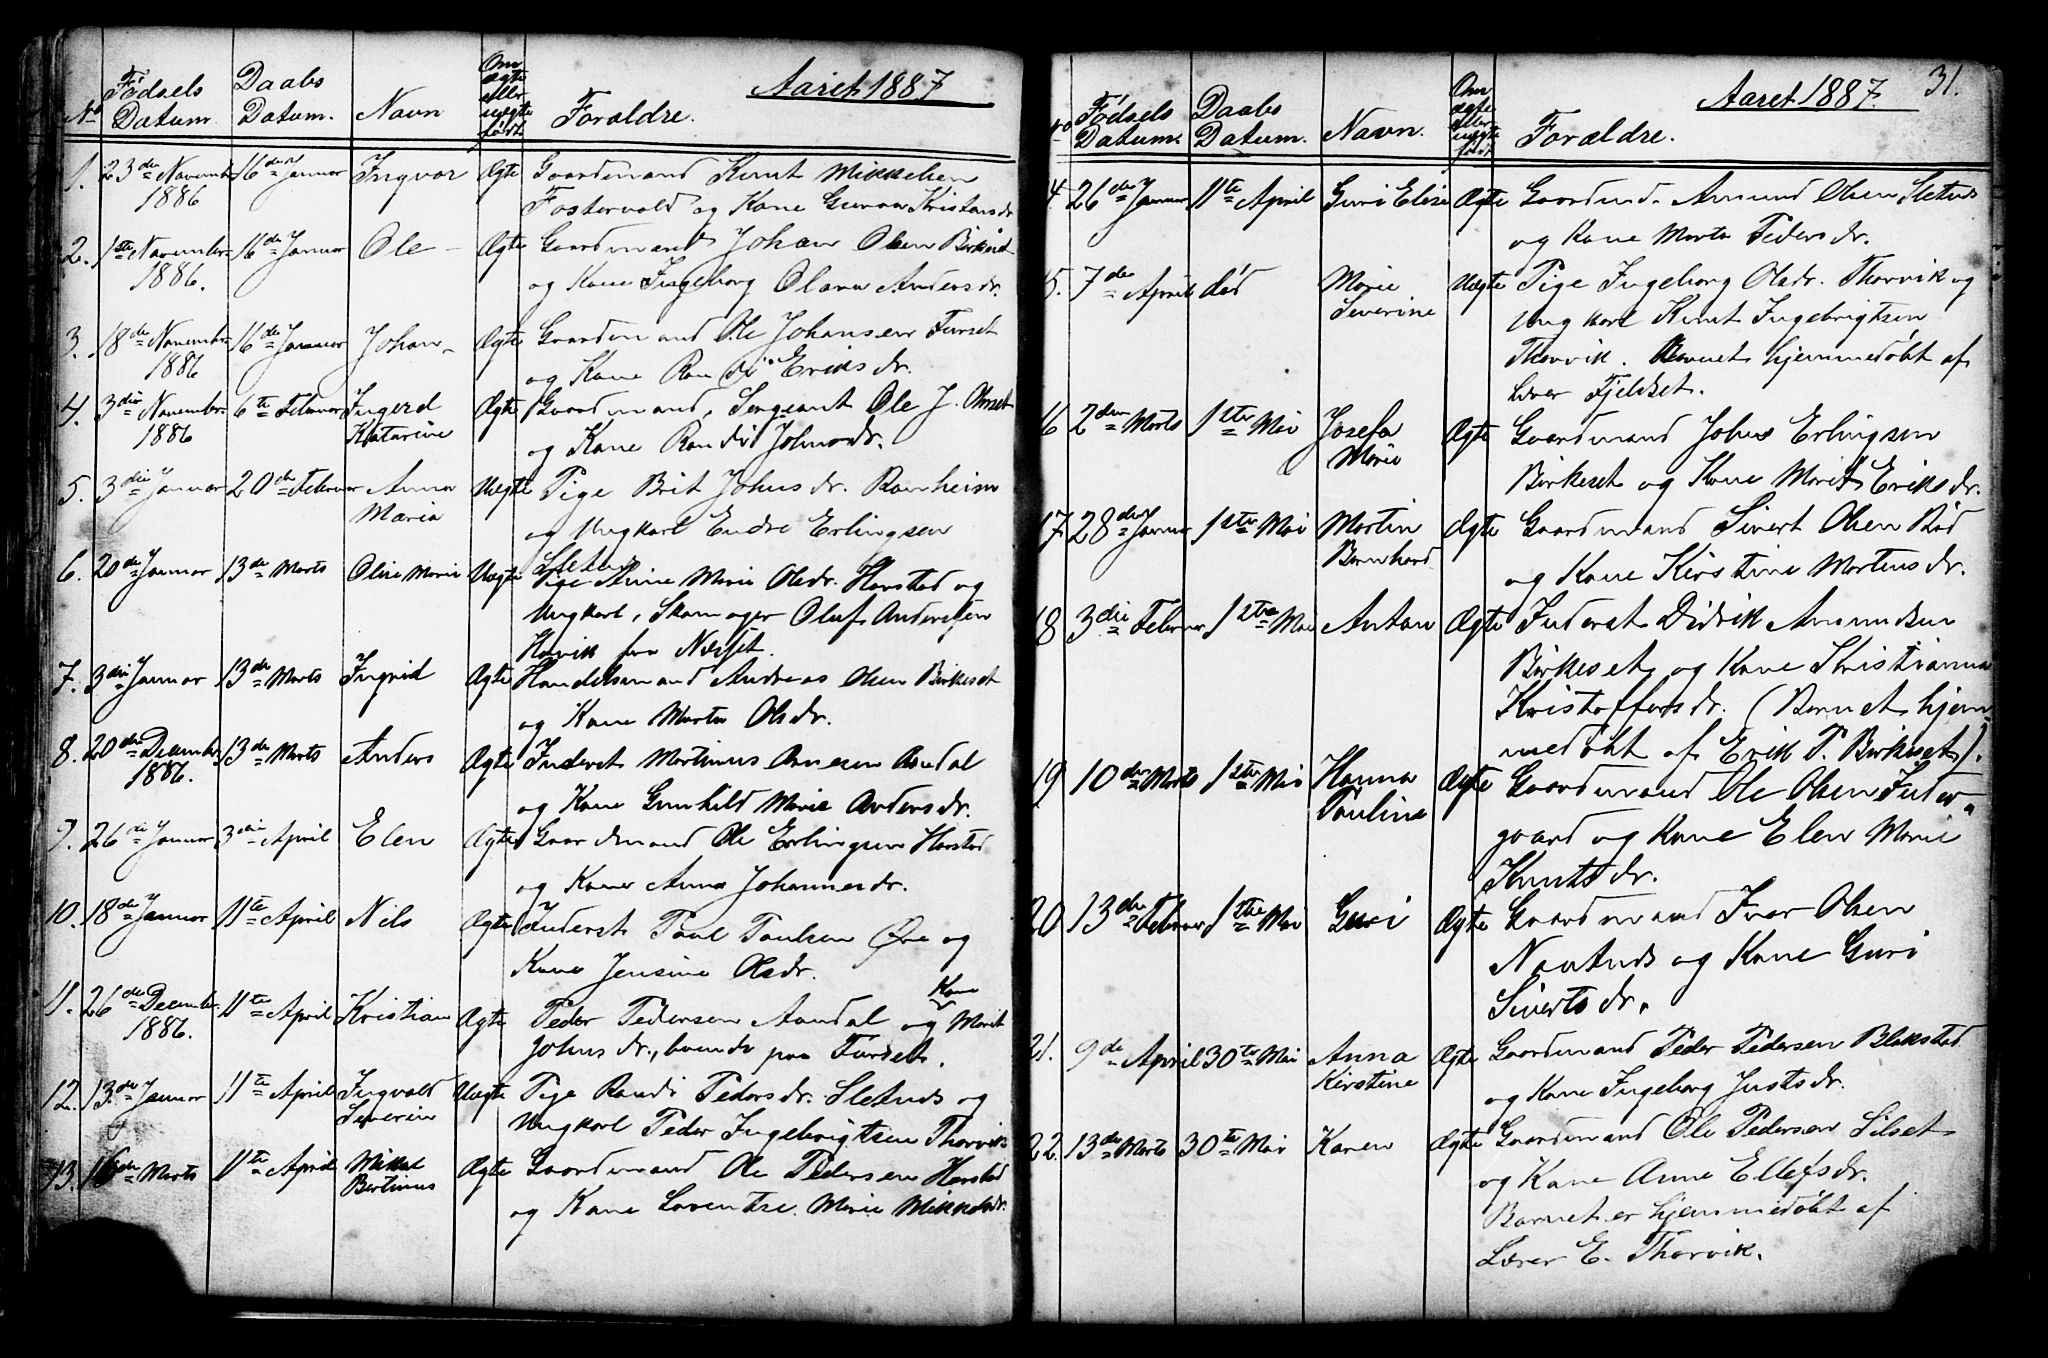 Aaret 1887
No Fødsels Datum Daabs Datum. Navn Om ægte eller uægte født. Forældre.
1. 23de Novembr 16de Januar Ingvar Ægte Gaardmand Knut Mikkelsen
1886 Fostervold og Kone Gunna Kristensdr.
2. 1ste November 16de Januar Ole Ægte Gaardmand Johan Olsen Birkeset
1886. og Kone Ingeborg Olava Andersdr.
3. 18de Novembr 16de Januar Johan Ægte Gaardmand Ole Johansen Furset
1886 og Kone Randi Eriksdr.
4. 3die November 6te Februar Ingerd Ægte Gaardmand, Sergeant Ole J.
1886 Katarine og Kone Randi Johnsdr.
5. 3die Januar 20de Februar Anna Uægte Pige Brit Johnsdr. Ranheim
Maria og Ungkarl Endre Erlingsen
Sletnes
6. 20de Januar 13de Marts Oline Marie Uægte Pige Anne Marie Olsdr. Harstad og
Ungkarl, Skomager Oluf Andersen
Havik fra Nesset.
7. 3die Januar 13de Marts Ingrid Ægte Handelsmand Andreas Olsen Birkeset
og Kone Marta Olsdr.
8. 20de December 13de Marts Anders Ægte Inderst Martinus Arnesen Aandal
1886. og Kone Gunhild Marie Andersdr.
9. 26de Januar 3die April Elen Ægte Gaardmand Ole Erlingsen Harstad
og Kone Anna Johannesdr.
10. 18de Januar 11te April Nils Ægte Inderst Paul Paulsen Øre og
Kone Jensine Olsdr.
11. 26de December 11te April Kristian Ægte Peder Pedersen Aandal og Kone Marit
1886. Johnsdr., boende paa Furset.
12. 13de Januar 11te April Ingvald Uægte Pige Randi Pedersdr. Sletnes og
Severin Ungkarl Peder Ingebrigtsen Thorvik
13. 16de Marts 11te April Mikal Ægte Gaardmand Ole Pedersen Harstad
Bertinus og Kone Lorentse Marie Mikkelsdr.
31.
Aaret 1887.
No Fødsels Datum. Daabs Datum. Navn. Om ægte eller uægte født Forældre.
4. 26de Januar 11te April Guri Elise Ægte Gaardmd. Amund Olsen Sletnes
og Kone Marta Pedersdr.
5. 7de April død Marie Uægte Pige Ingeborg Olsdr. Thorvik og
Severine Ungkarl Knut Ingebrigtsen
Thorvik. Barnet hjemmedøbt af
Lærer Fjeldset.
16 2den Marts 1ste Mai Josefa Ægte Gaardmand Johns Erlingsen
Marie Birkeset og Kone Marit Eriksdr.
17 28de Januar 1ste Mai Martin Ægte Gaardmand Sivert Olsen Bød
Bernhard og Kone Kirstine Mortensdr.
18 3die Februar 1ste Mai Anton Ægte Inderst Didrik Amundsen
Birkeset og Kone Kristianna
Kristoffersdr. (Barnet hjem-
medøbt af Erik P. Birkeset).
19 10de Marts 1ste Mai Hanna Ægte Gaardmand Ole Olsen Inder-
Pauline gaard og Kone Elen Marie
Knutsdr.
20 13de Februar 1ste Mai Guri Ægte Gaardmand Ivar Olsen
og Kone Guri
Sivertsdr.
21. 9de April 30te Mai Anna Ægte Gaardmand Peder Pedersen Blakstad
Kirstine og Kone Ingeborg Justsdr.
22. 13de Marts 30te Mai Karen Ægte Gaardmand Ole Pedersen Silset
og Kone Anne Ellefsdr.
Barnet er hjemmedøbt af
Lærer E. Thorvik.